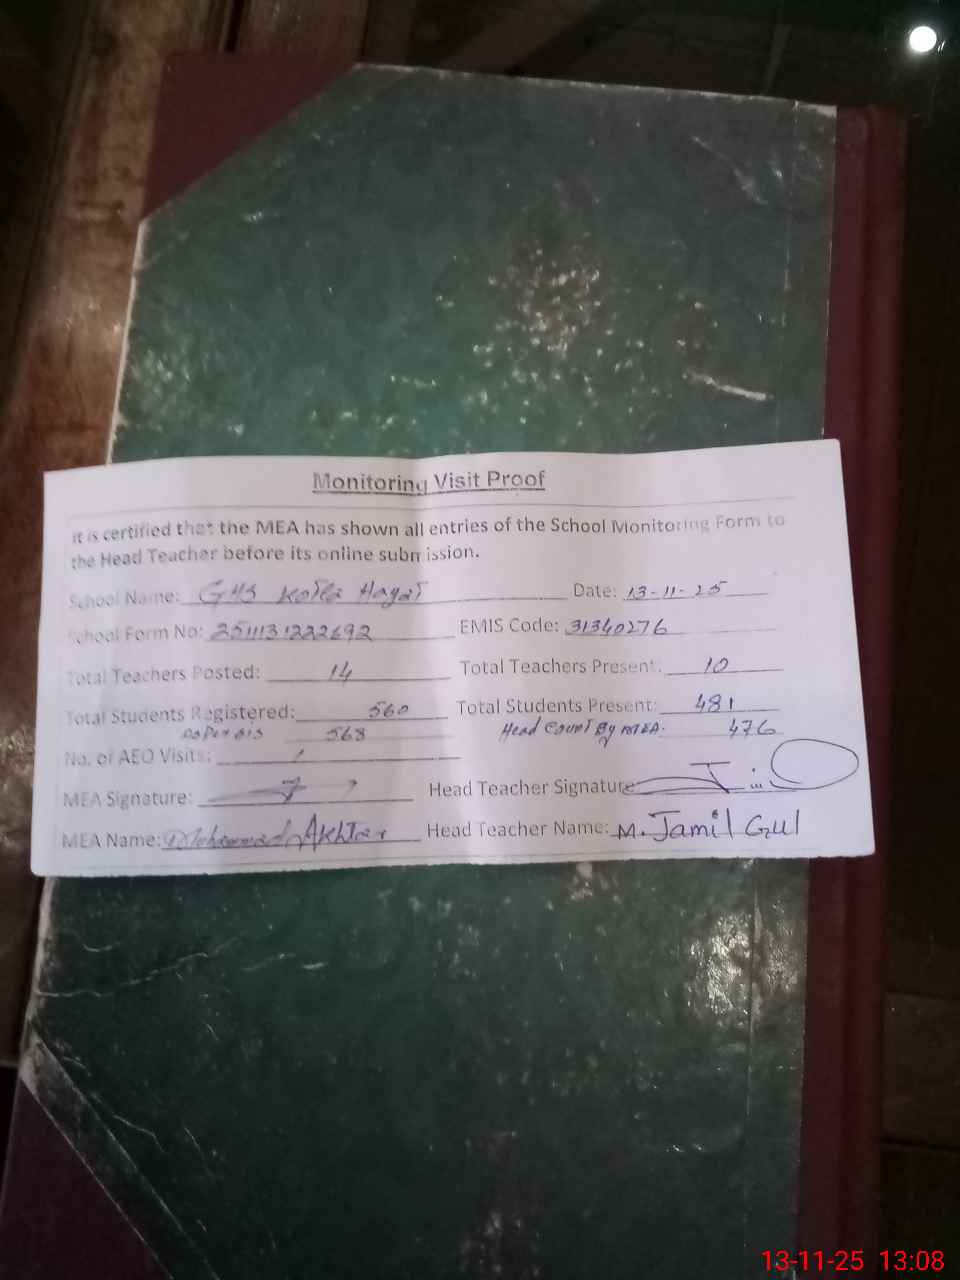 Monitoring Visit Proof
It is certified that the MEA has shown all entries of the School Monitoring Form to
the Head Teacher before its online submission.
School Name: GHS Kotla Hayat Date: 13-11-25
School Form No: 2511131222692 EMIS Code: 31340276
Total Teachers Posted: 14 Total Teachers Present: 10
Total Students Registered: 560 Total Students Present: 481
as per SIS 568 Head Count By MEA. 476
No. of AEO Visits:
MEA Signature: Head Teacher Signature
MEA Name: Mohammad Akhtar Head Teacher Name: M. Jamil Gul
13-11-25 13:08